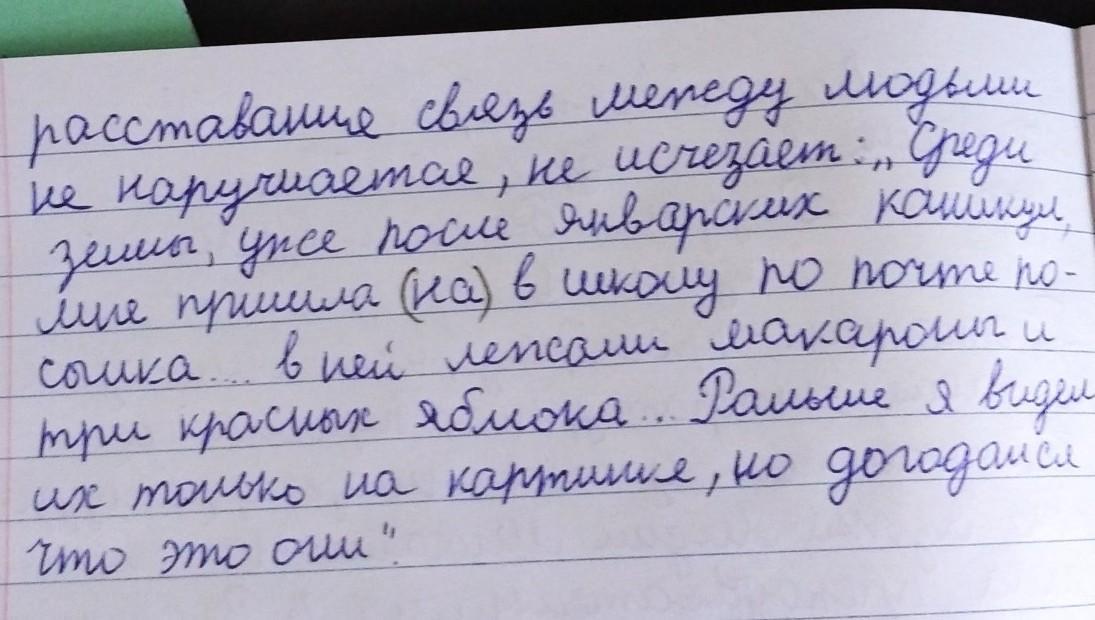 расставание связь между людьми
не наручиается, не исчезает: „Среди
зимы, уже после январских каникул,
мне пришла (на) в школу по почте по-
сылка... в ней лежали макароны и
три красных яблока... Раньше я видел
их только на картинке, но догодался
что это они".